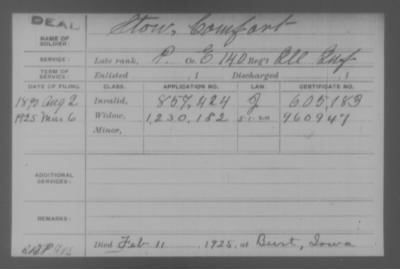 DEAD
NAME OF SOLDIER: Stow, Comfort
SERVICE: Late rank, P. Co. E 140 Reg't Ill Inf
TERM OF SERVICE: Enlisted , 1 Discharged , 1
DATE OF FILING. CLASS. APPLICATION NO. LAW. CERTIFICATE NO.
1890 Aug 2 Invalid, 857,424 J 605,183
1925 Mar 6 Widow, 1,230,182 960947
Minor,
ADDITIONAL SERVICES:
REMARKS:
Died Feb 11, 1925, at Burt, Iowa